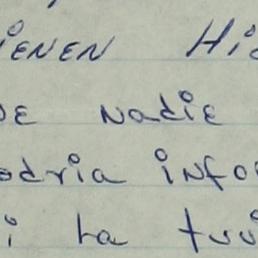 ienen Hi
de nadie
odria info
i ha tuv